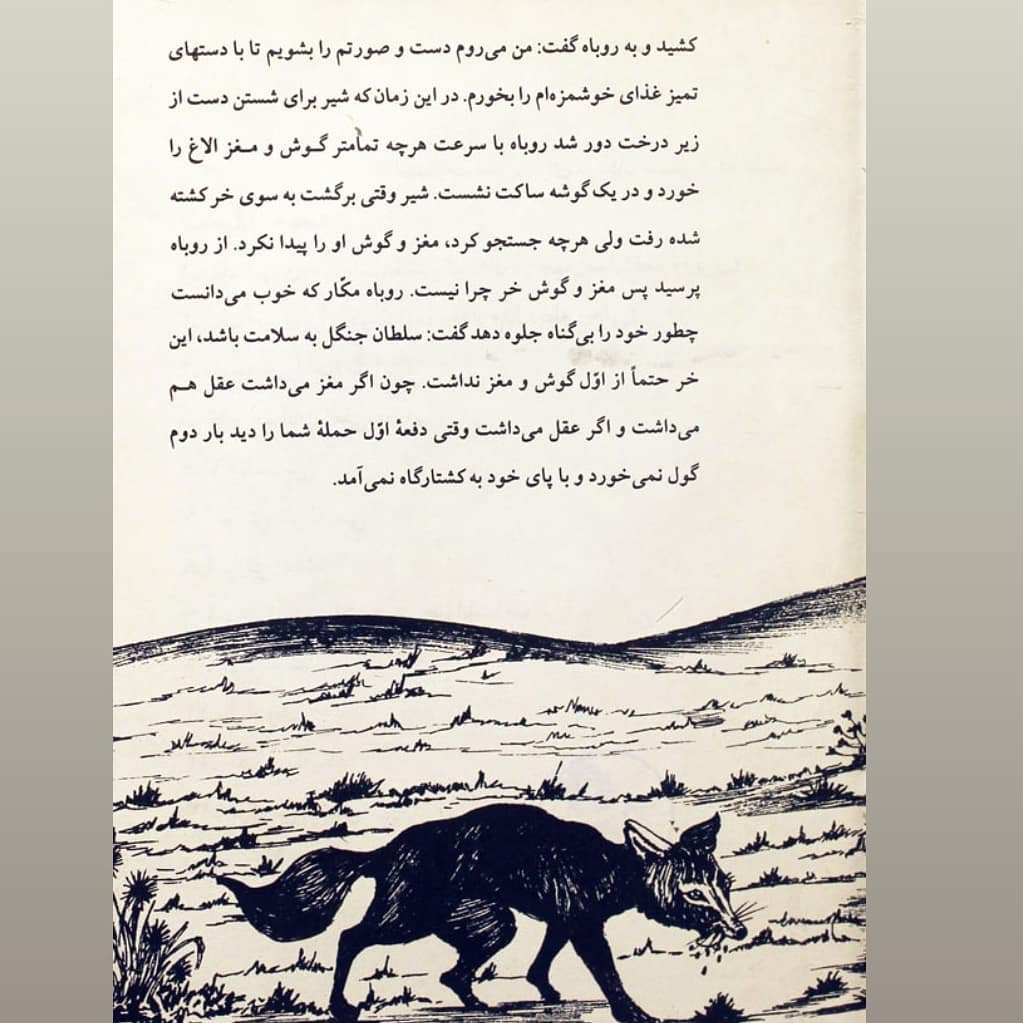 کشید و به روباه گفت: من می‌روم دست و صورتم را بشویم تا با دستهای
تمیز غذای خوشمزه‌ام را بخورم. در این زمان که شیر برای شستن دست از
زیر درخت دور شد روباه با سرعت هرچه تمامتر گوش و مغز الاغ را
خورد و در یک گوشه ساکت نشست. شیر وقتی برگشت به سوی خر کشته
شده رفت ولی هرچه جستجو کرد، مغز و گوش او را پیدا نکرد. از روباه
پرسید پس مغز و گوش خر چرا نیست. روباه مکّار که خوب می‌دانست
چطور خود را بی‌گناه جلوه دهد گفت: سلطان جنگل به سلامت باشد، این
خر حتماً از اوّل گوش و مغز نداشت. چون اگر مغز می‌داشت عقل هم
می‌داشت و اگر عقل می‌داشت وقتی دفعهٔ اوّل حملهٔ شما را دید بار دوم
گول نمی‌خورد و با پای خود به کشتارگاه نمی‌آمد.